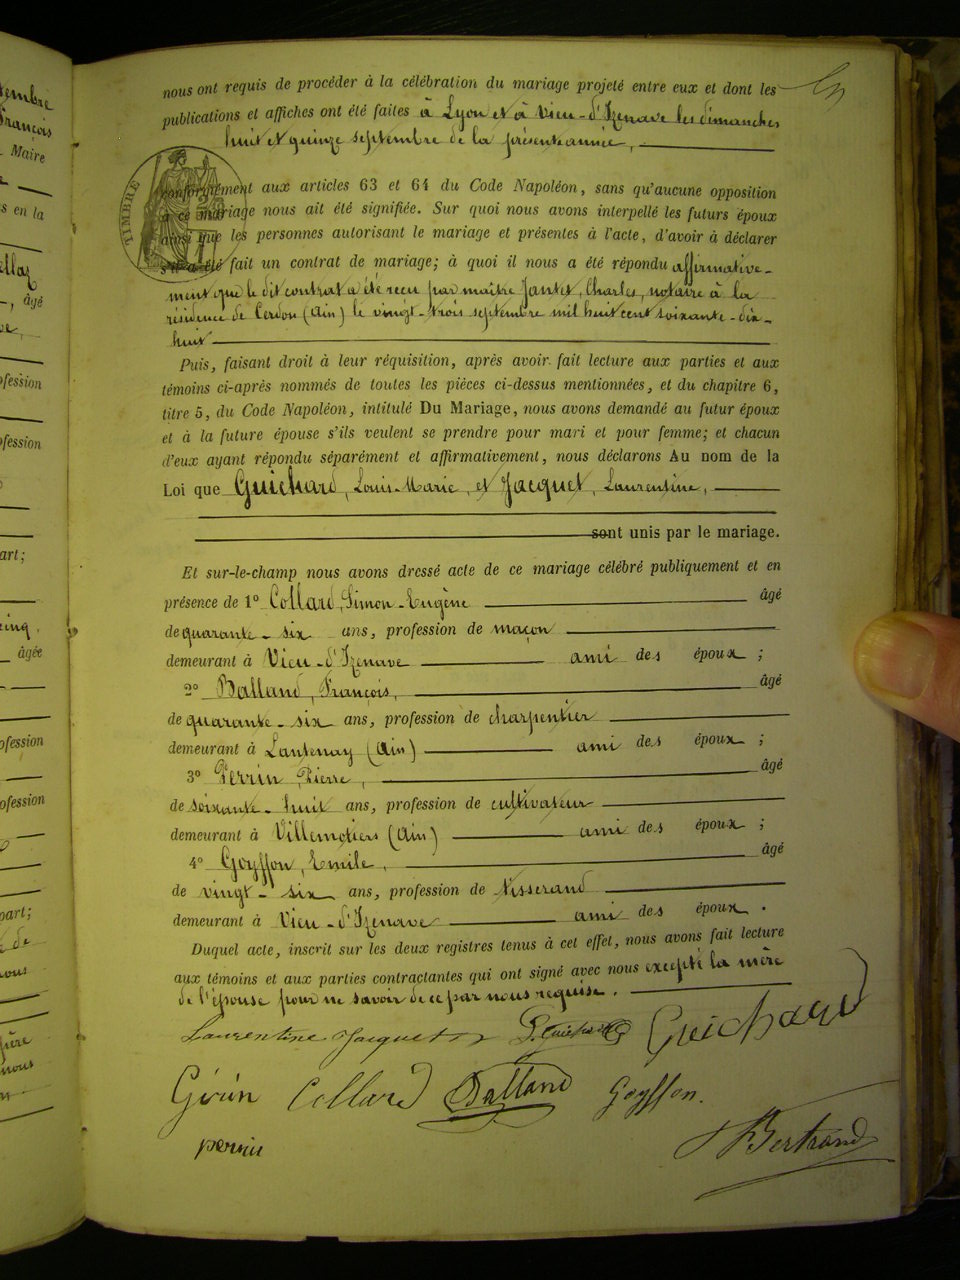 tembre
François
Maire
s en la
âgé
ofession
ofession
art;
âgée
ofession
ofession
part;
de
nous
nous
nous ont requis de procéder à la célébration du mariage projeté entre eux et dont les
publications et affiches ont été faites à Lyon et à Vieu-d'Izenave les dimanches
huit et quinze septembre de la présente année,
TIMBRE
conformément aux articles 63 et 64 du Code Napoléon, sans qu'aucune opposition
à ce mariage nous ait été signifiée. Sur quoi nous avons interpellé les futurs époux
ainsi que les personnes autorisant le mariage et présentes à l'acte, d'avoir à déclarer
s'il a été fait un contrat de mariage; à quoi il nous a été répondu affirmative-
ment que le dit contrat a été reçu par maître Jantet, Charles, notaire à la
résidence de Cerdon (Ain) le vingt-trois septembre mil huit cent soixante-dix-
huit
Puis, faisant droit à leur réquisition, après avoir fait lecture aux parties et aux
témoins ci-après nommés de toutes les pièces ci-dessus mentionnées, et du chapitre 6,
titre 5, du Code Napoléon, intitulé Du Mariage, nous avons demandé au futur époux
et à la future épouse s'ils veulent se prendre pour mari et pour femme; et chacun
d'eux ayant répondu séparément et affirmativement, nous déclarons Au nom de la
Loi que Guichard, Louis-Marie, et Jacquet, Laurentine,
sont unis par le mariage.
Et sur-le-champ nous avons dressé acte de ce mariage célébré publiquement et en
présence de 1° Collard, Simon-Eugène âgé
de quarante-six ans, profession de maçon
demeurant à Vieu-d'Izenave ami des époux;
2° Balland, François, âgé
de quarante-six ans, profession de charpentier
demeurant à Lantenay (Ain) ami des époux;
3° Perrin, Pierre, âgé
de soixante-huit ans, profession de cultivateur
demeurant à Villemotiers (Ain) ami des époux;
4° Goyffon, Emile, âgé
de vingt-six ans, profession de tisserand
demeurant à Vieu-d'Izenave ami des époux.
Duquel acte, inscrit sur les deux registres tenus à cet effet, nous avons fait lecture
aux témoins et aux parties contractantes qui ont signé avec nous excepté la mère
de l'épouse pour ne savoir de ce par nous requise.
Laurentine Jacquet Guichard
Collard Balland Goyffon.
perrin Bertrand